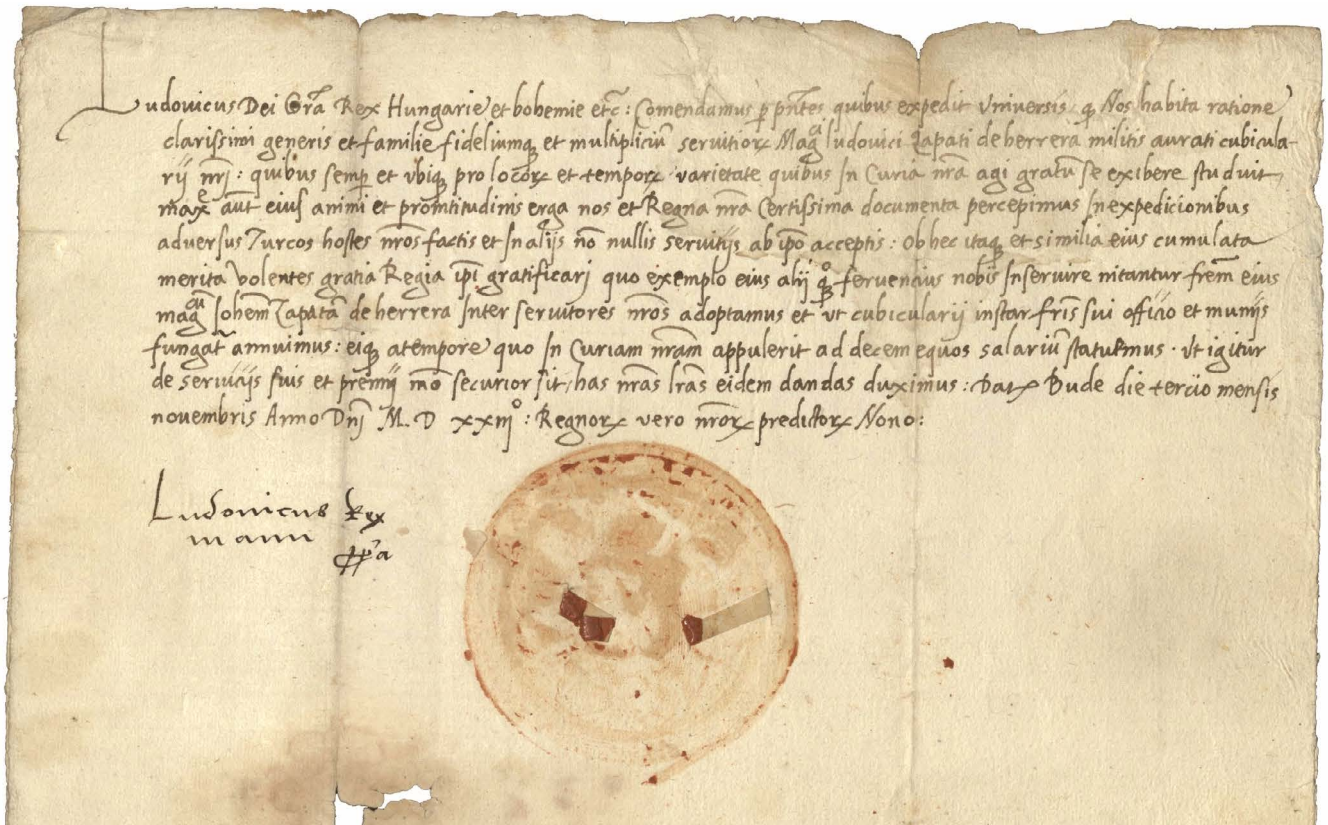 Ludovicus Dei Gra̅ Rex Hungarie et bohemie etc̅: Com̅endamus p̱ pn̅tes quibus expedit Universis, ꝙ Nos habita ratione
clarissimi generis et familie fideliumqꝫ et multipliciu̅ servitioꝝ Mag^ci ludovici Zapati de herrera militis aurati cubicula-
rij nr̅j: quibus semp̱ et ubiqꝫ pro locoꝝ et tempoꝝ varietate quibus In Curia nr̅a agi gratu̅ se exibere studuit,
max^e au̅t eius animi et promtitudinis erga nos et Regna nr̅a Certissima documenta percepimus In expedicionibus
adversus Turcos hostes nr̅os factis et In alijs no̅ nullis servitijs ab ip̅o acceptis: Ob hec itaqꝫ et similia eius cumulata
merita volentes gratia Regia ip̅i gratificarj quo exemplo eius alij fervencius nobis Inservire nitantur fr̅em eius
mag^cu̅ Zapata̅ de herrera Inter servitores nr̅os adoptamus et ut cubicularij instar fr̅is sui officio et munijs
fungat̅ annuimus: eiqꝫ a tempore quo In Curiam nr̅am appulerit ad decem equos salariu̅ statuimus. Ut igitur
de servicijs suis et premij mo̅ securior sit, has nr̅as lr̅as eidem dandas duximus: Datꝝ Bude die tercio mensis
novembris Anno Dn̅j M. D xxiiij^o: Regnoꝝ vero nr̅oꝝ predictoꝝ Nono:
Ludovicus Rex
manu
ppa